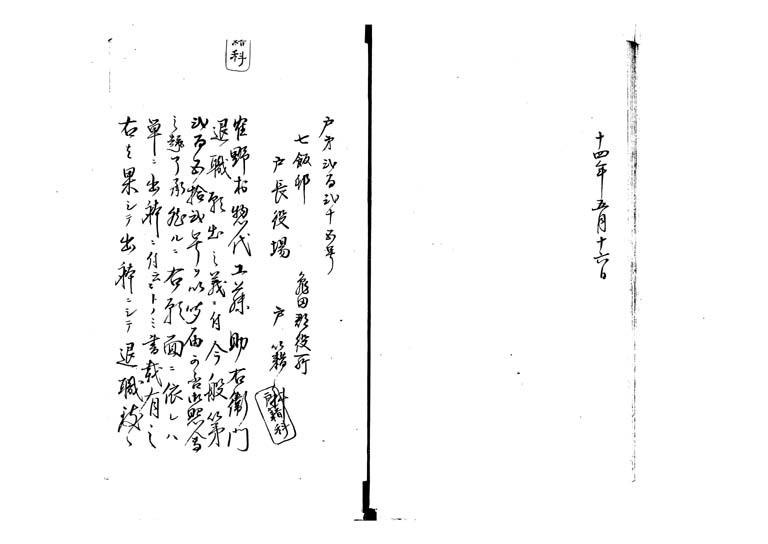 十四年五月十六日
戸第弐百弐十五号
亀田郡役所
戸籍科
七飯邨
戸長役場
峠野村惣代工藤助右衛門
退職願出之義ニ付今般第
弐百五拾弐号ヲ以御届之旨御照会
之趣了承然ルニ右願面ニ依レハ
単ニ出稼ニ付云々トノミ書載有之
右ハ果シテ出稼ニシテ退職致
籍科